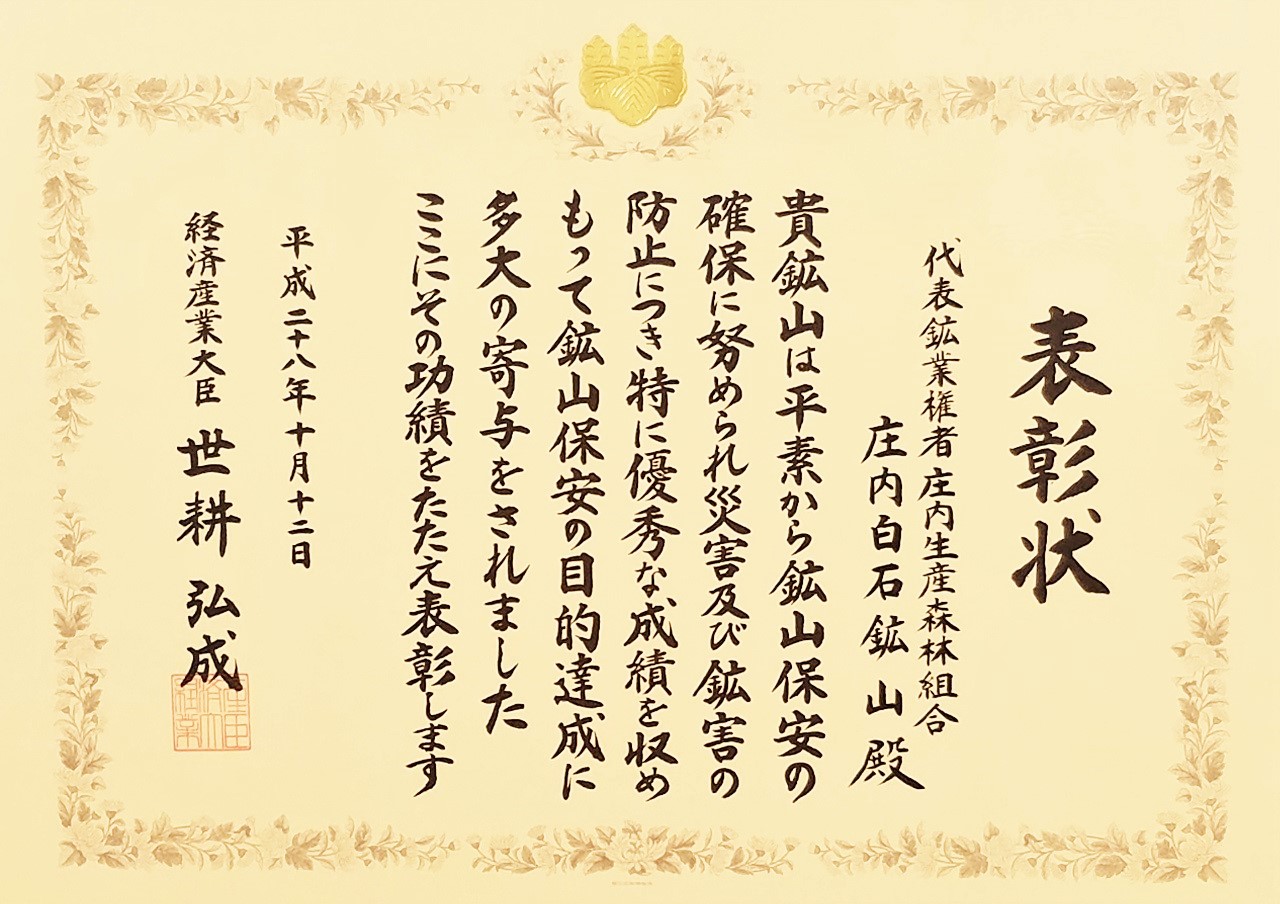 表彰状
代表鉱業権者庄内生産森林組合
庄内白石鉱山殿
貴鉱山は平素から鉱山保安の
確保に努められ災害及び鉱害の
防止につき特に優秀な成績を収め
もって鉱山保安の目的達成に
多大の寄与をされました
ここにその功績をたたえ表彰します
平成二十八年十月十二日
経済産業大臣 世耕弘成